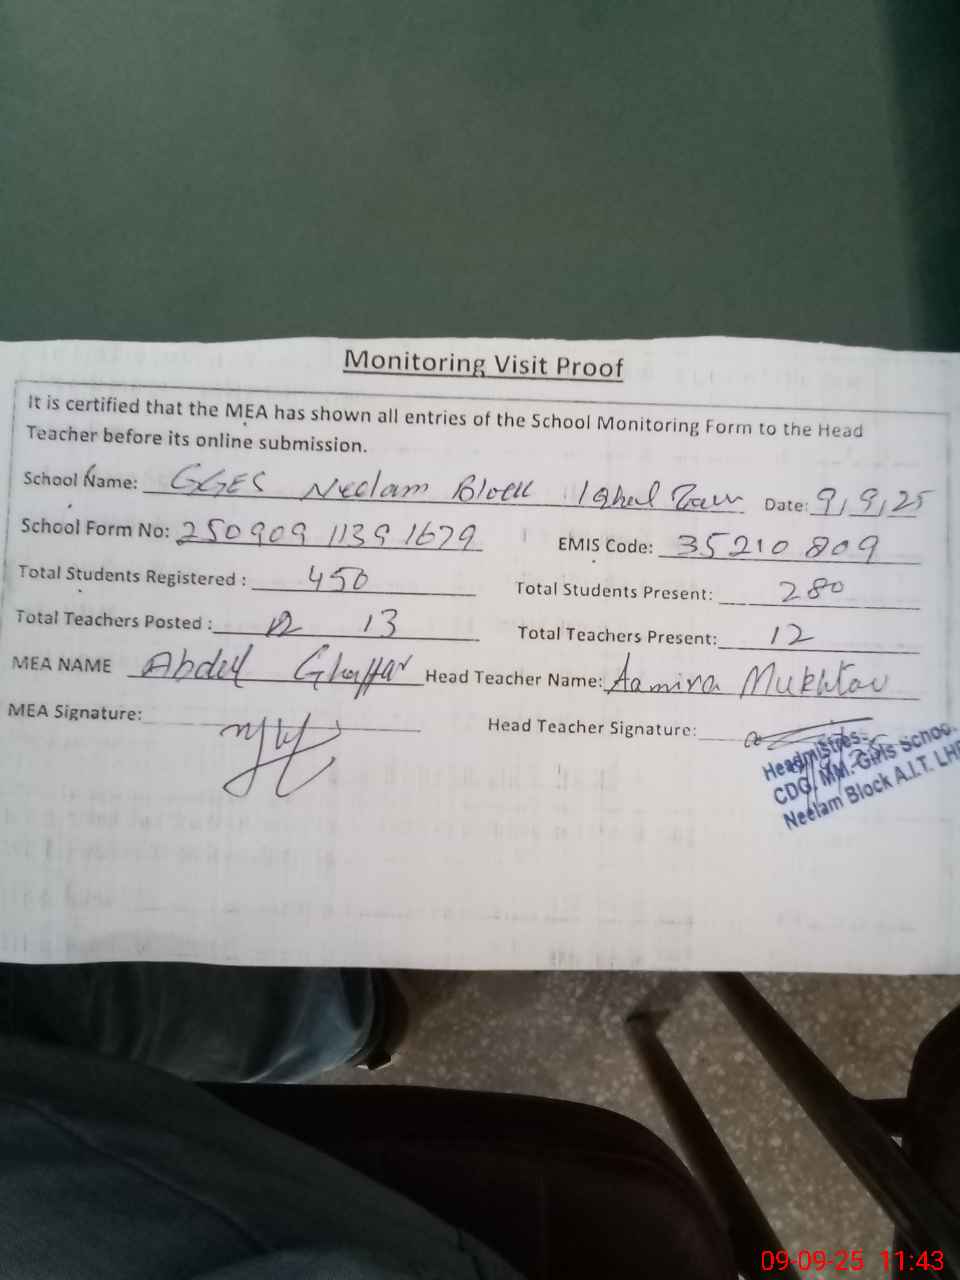 Monitoring Visit Proof
It is certified that the MEA has shown all entries of the School Monitoring Form to the Head
Teacher before its online submission.
School Name: GGES Neelam Block Iqbal Town Date: 9/9/25
School Form No: 250909 1139 1679 EMIS Code: 35210809
Total Students Registered : 450 Total Students Present: 280
Total Teachers Posted : 13 Total Teachers Present: 12
MEA NAME Abdul Ghaffar Head Teacher Name: Aamira Mukhtar
MEA Signature: Head Teacher Signature:
Headmistres
CDG. MM. Girls School
Neelam Block A.I.T. LHR
09-09-25 11:43